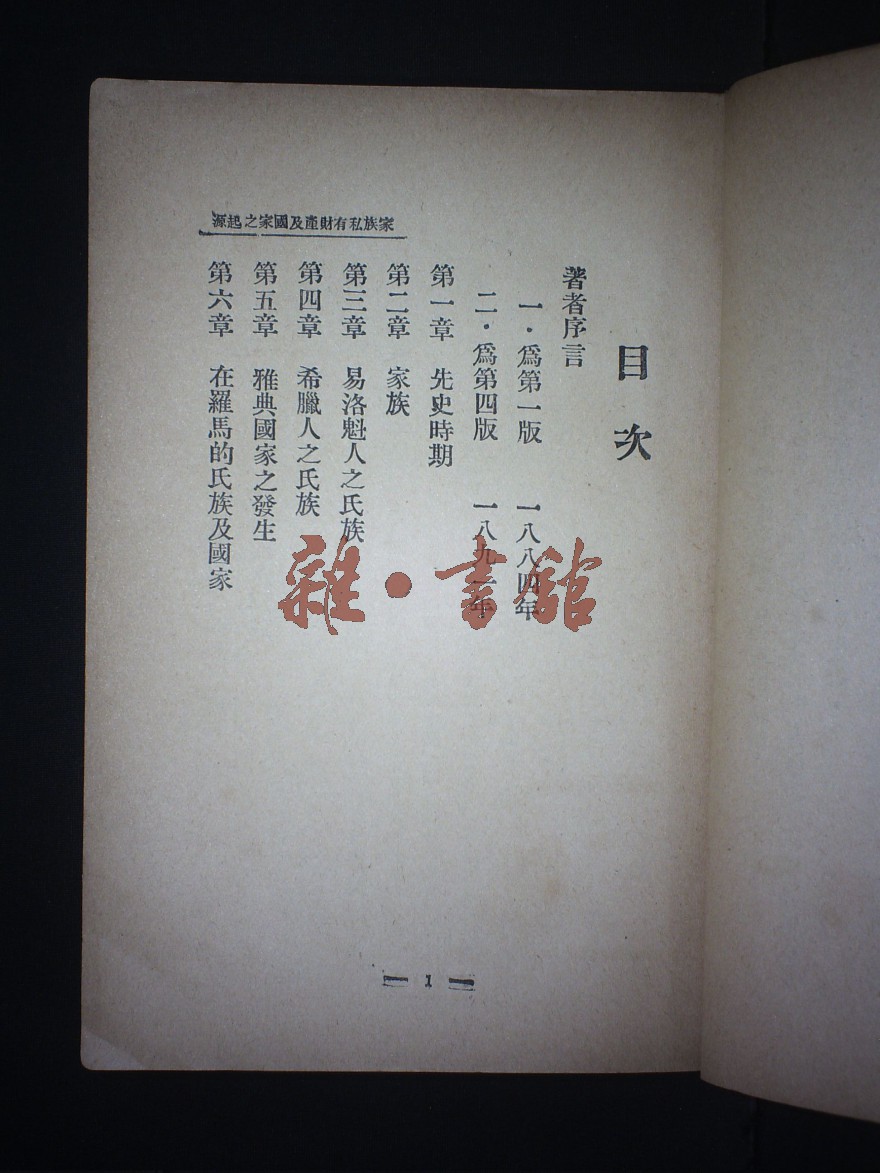 家族私有財產及國家之起源
目次
著者序言
一・爲第一版 一八八四年
二・爲第四版 一八九一年
第一章 先史時期
第二章 家族
第三章 易洛魁人之氏族
第四章 希臘人之氏族
第五章 雅典國家之發生
第六章 在羅馬的氏族及國家
雜・書館
1